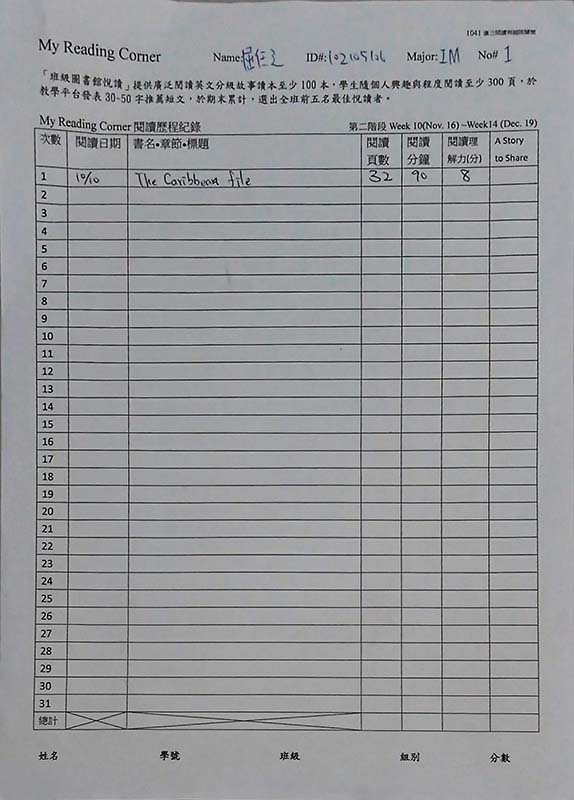 My Reading Corner Name: ID#: 102105106 Major: IM No# 1
「班級圖書館悅讀」提供廣泛閱讀英文分級故事讀本至少 100 本,學生隨個人興趣與程度閱讀至少 300 頁,於
教學平台發表 30-50 字推薦短文,於期末累計,選出全班前五名最佳悅讀者。
My Reading Corner 閱讀歷程紀錄 第二階段 Week 10(Nov. 16) ~Week14 (Dec. 19)
次數 閱讀日期 書名•章節•標題 閱讀 閱讀 閱讀理 A Story
頁數 分鐘 解力(分) to Share
1 10/10 The Caribbean file 32 90 8
2
3
4
5
6
7
8
9
10
11
12
13
14
15
16
17
18
19
20
21
22
23
24
25
26
27
28
29
30
31
總計
姓名 學號 班級 組別 分數